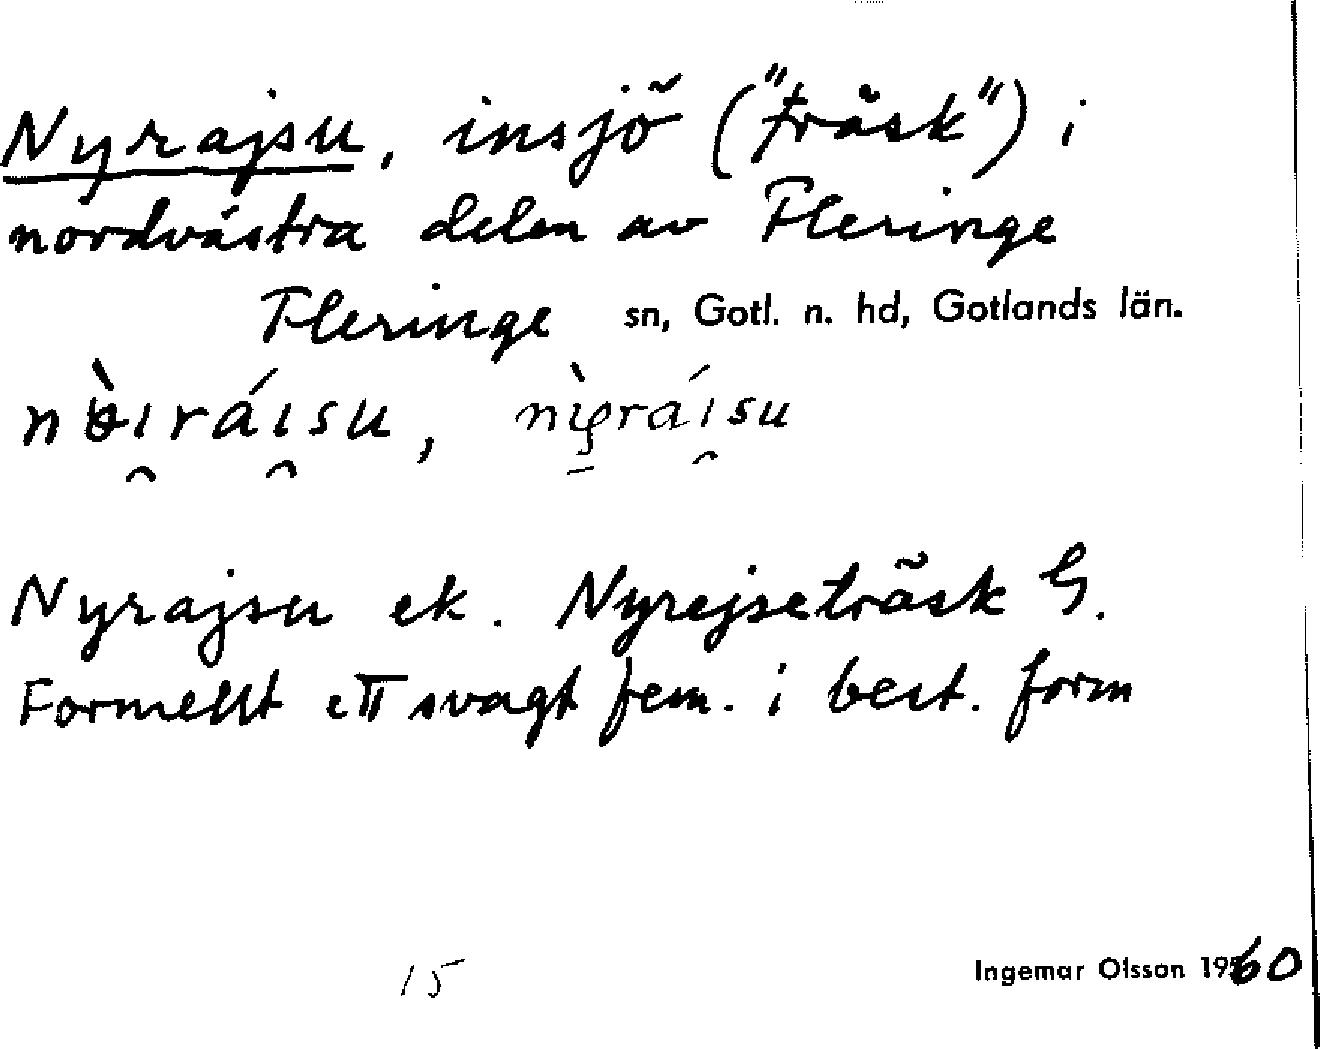 Nyrajsu, insjö ("träsk") i
nordvästra delen av Fleringe
Fleringe sn, Gotl. n. hd, Gotlands län.
Nyrajsu ek. Nyrejseträsk G.
Formellt ett svagt fem. i best. form
15
Ingemar Olsson 1960